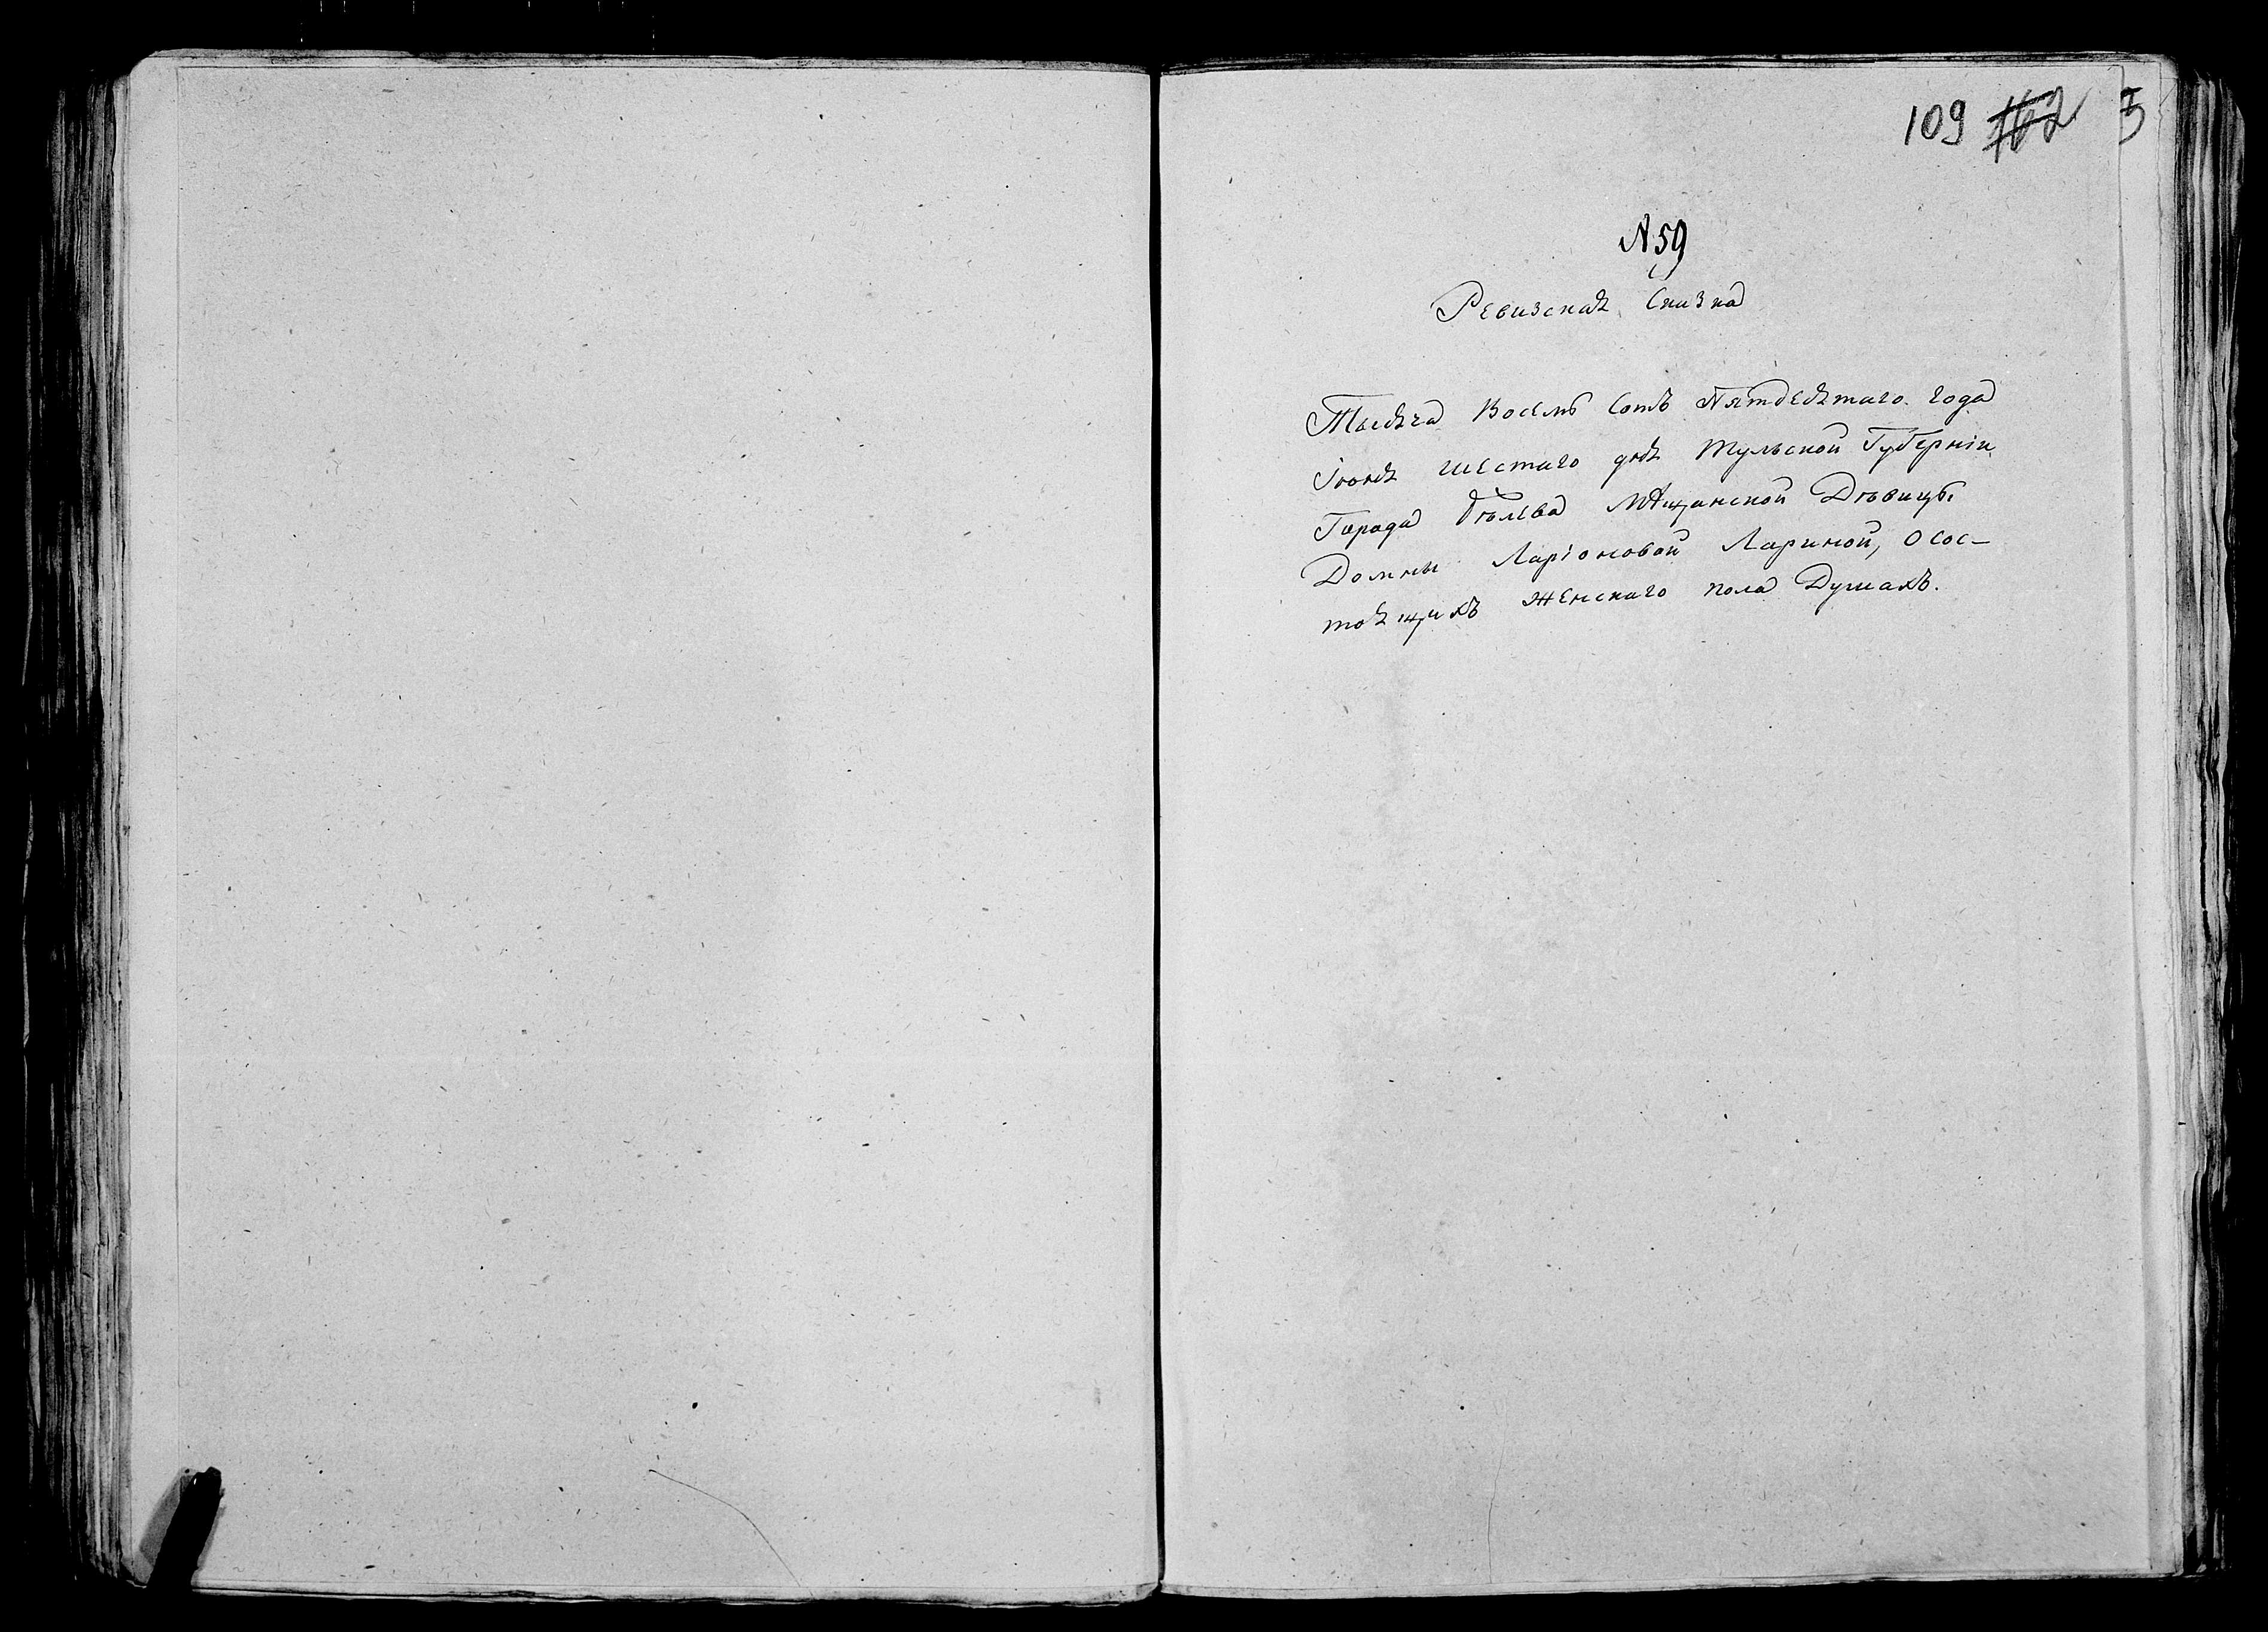 109 162
№ 59
Ревизская Сказка
Тысяча Восемь Сотъ Пятдесятаго года
Іюня шестаго дня Тульской Губерніи
Города Бѣлева Мѣщанской Дѣвицы
Домны Ларіоновой Лариной, О сос-
тоящихъ женскаго пола Душахъ.